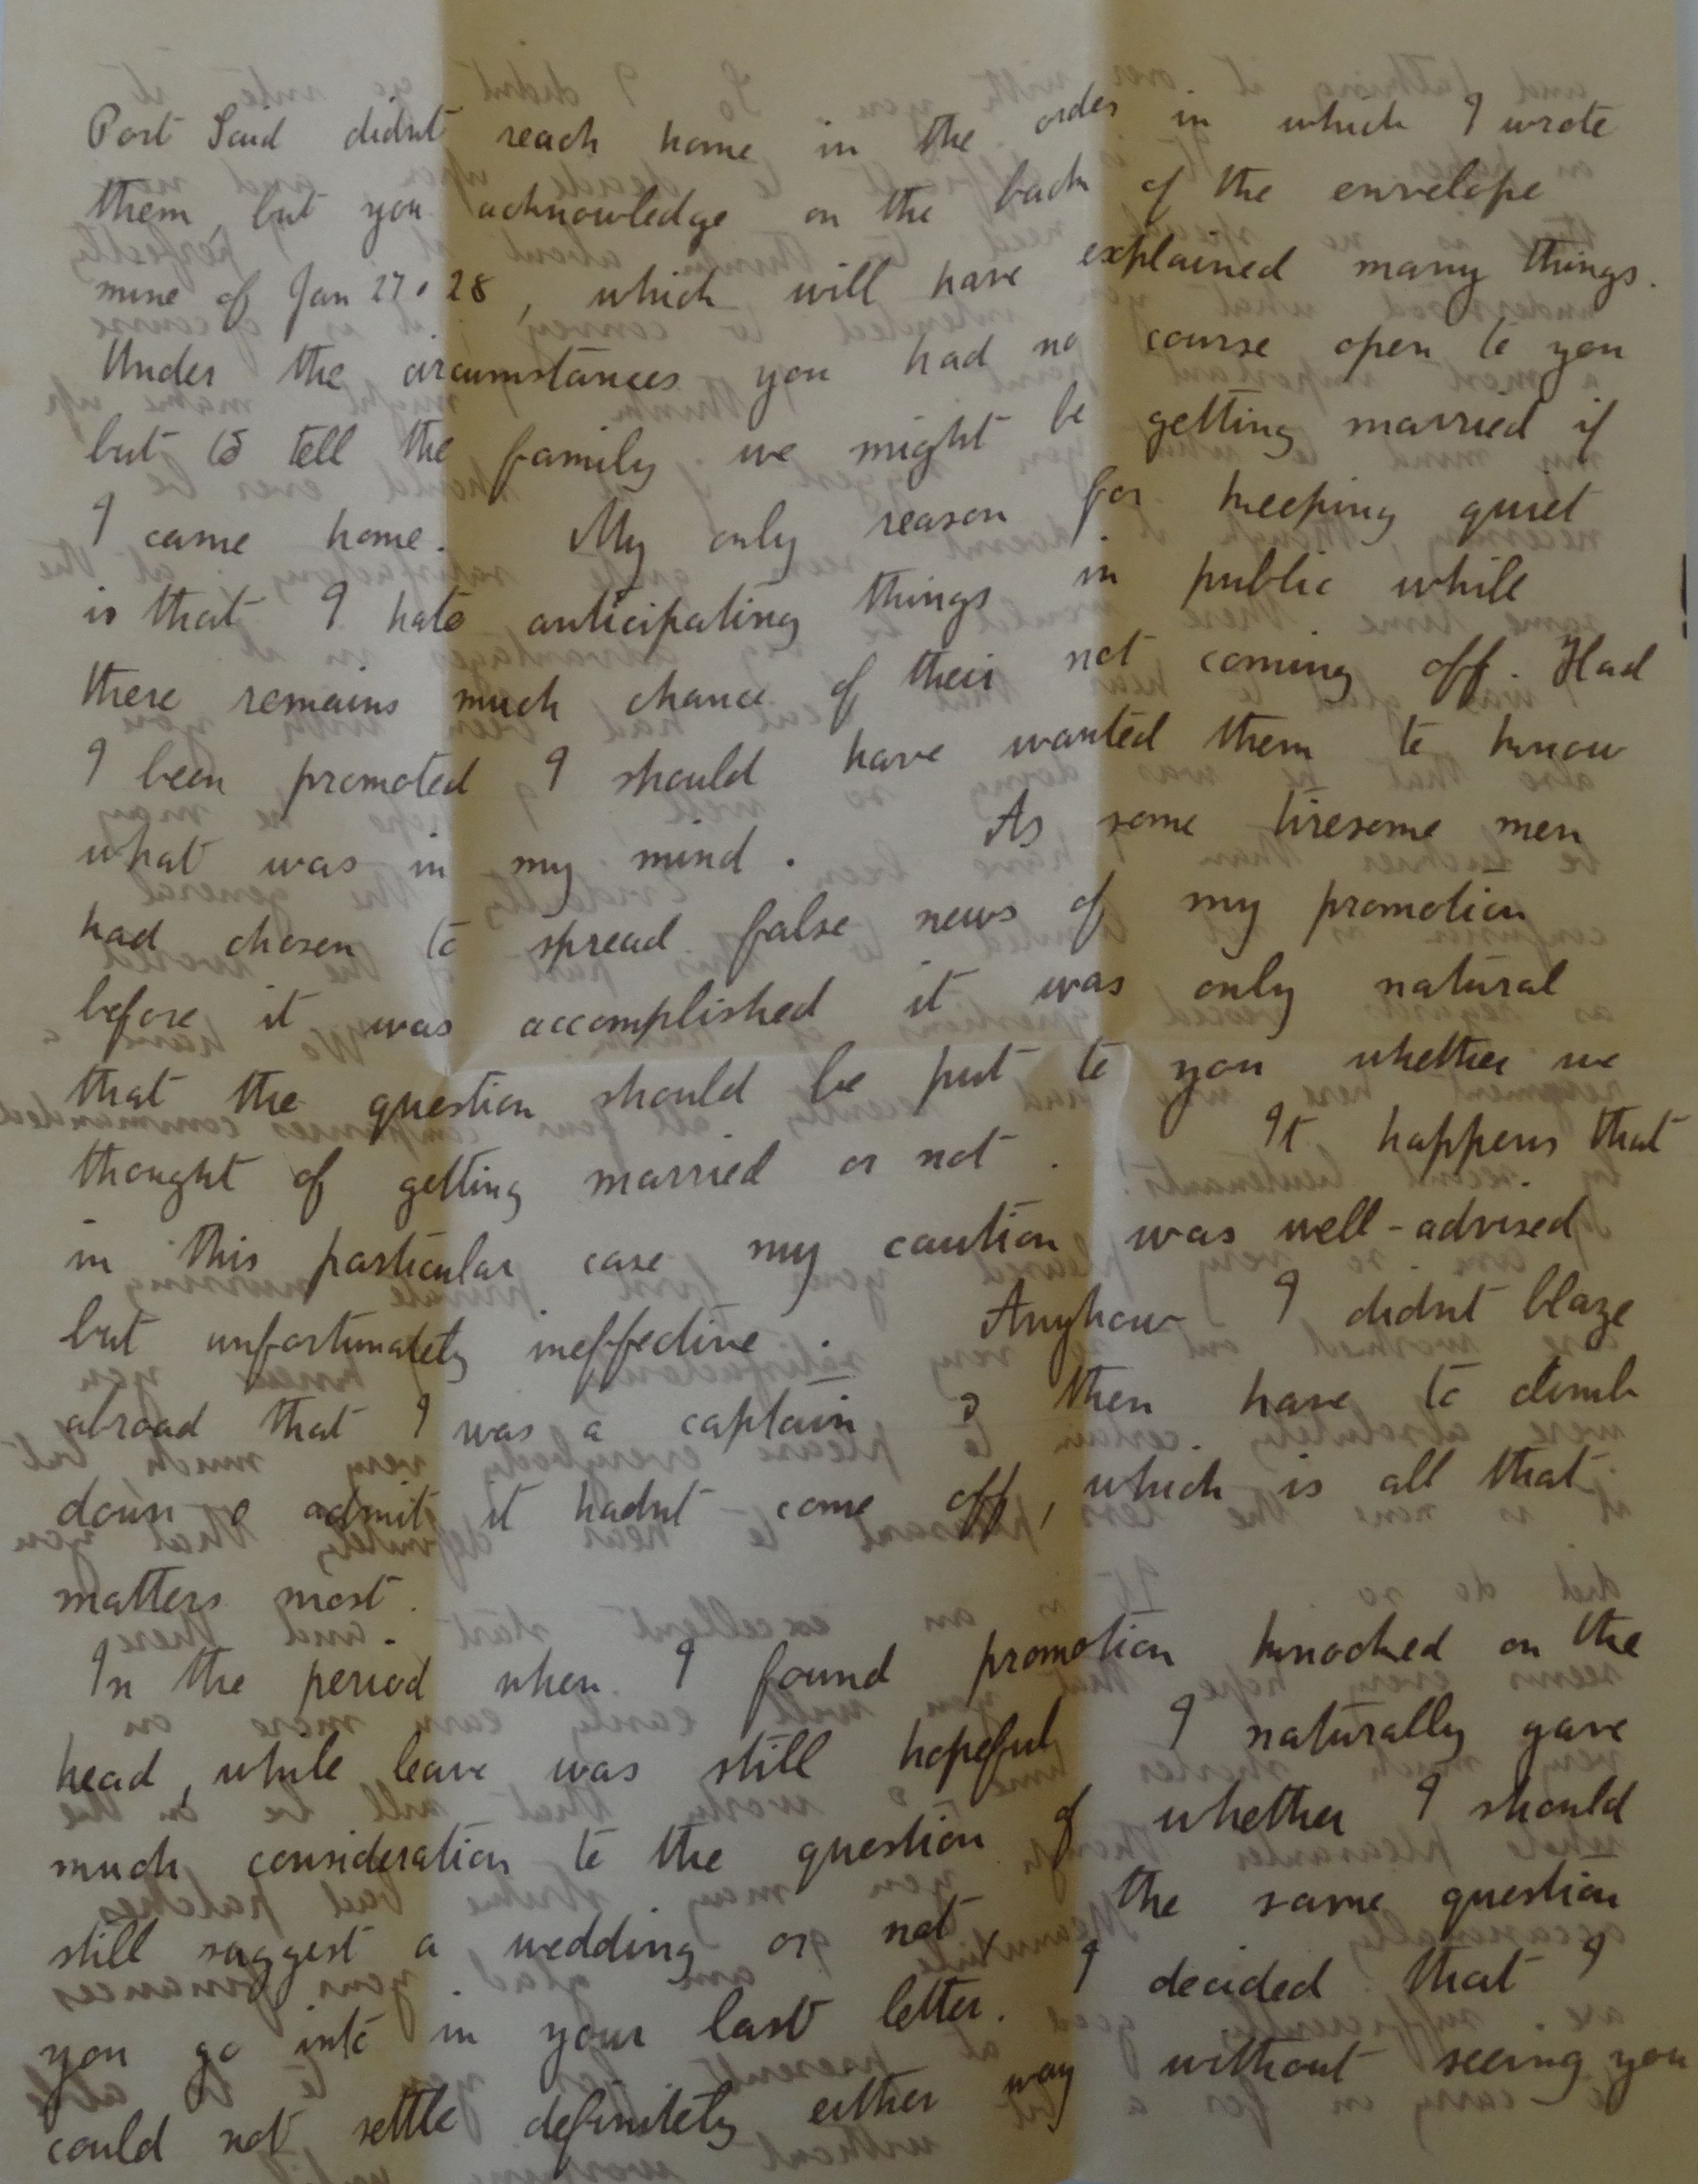 Port Said didnt reach home in the order in which I wrote
them, but you acknowledge on the back of the envelope
mine of Jan 27 & 28, which will have explained many things.
Under the circumstances you had no course open to you
but to tell the family we might be getting married if
I came home. My only reason for keeping quiet
is that I hate anticipating things in public while
there remains much chance of their not coming off. Had
I been promoted I should have wanted them to know
what was in my mind. As some tiresome men
had chosen to spread false news of my promotion
before it was accomplished it was only natural
that the question should be put to you whether we
thought of getting married or not. It happens that
in this particular case my caution was well-advised
but unfortunately ineffective. Anyhow I didnt blaze
abroad that I was a captain & then have to climb
down & admit it hadnt come off, which is all that
matters most.
In the period when I found promotion knocked on the
head, while leave was still hopeful I naturally gave
much consideration to the question of whether I should
still suggest a wedding or not, the same question
you go into in your last letter. I decided that I
could not settle definitely either way without seeing you